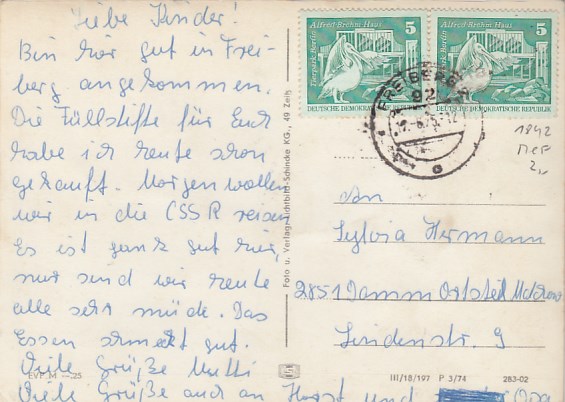 Liebe Kinder!
Bin hier gut in Frei-
berg angekommen.
Die Füllstifte für Euch
habe ich heute schon
gekauft. Morgen wollen
wir in die CSSR reisen
Es ist ganz gut hier,
nur sind wir heute
alle sehr müde. Das
Essen schmeckt gut.
Viele Grüße Mutti
Viele Grüße auch an Horst und Opa
EVP M -.25
Foto u. Verlag Lichtbild-Schincke KG., 49 Zeitz
Alfred-Brehm-Haus 5
Tierpark Berlin
DEUTSCHE DEMOKRATISCHE REPUBLIK
Alfred-Brehm-Haus 5
Tierpark Berlin
DEUTSCHE DEMOKRATISCHE REPUBLIK
FREIBERG
92
1842
MeF
2,-
An
Sylvia Hermann
2851 Damm Ortsteil
Lindenstr. 9
III/18/197 P 3/74 283-02